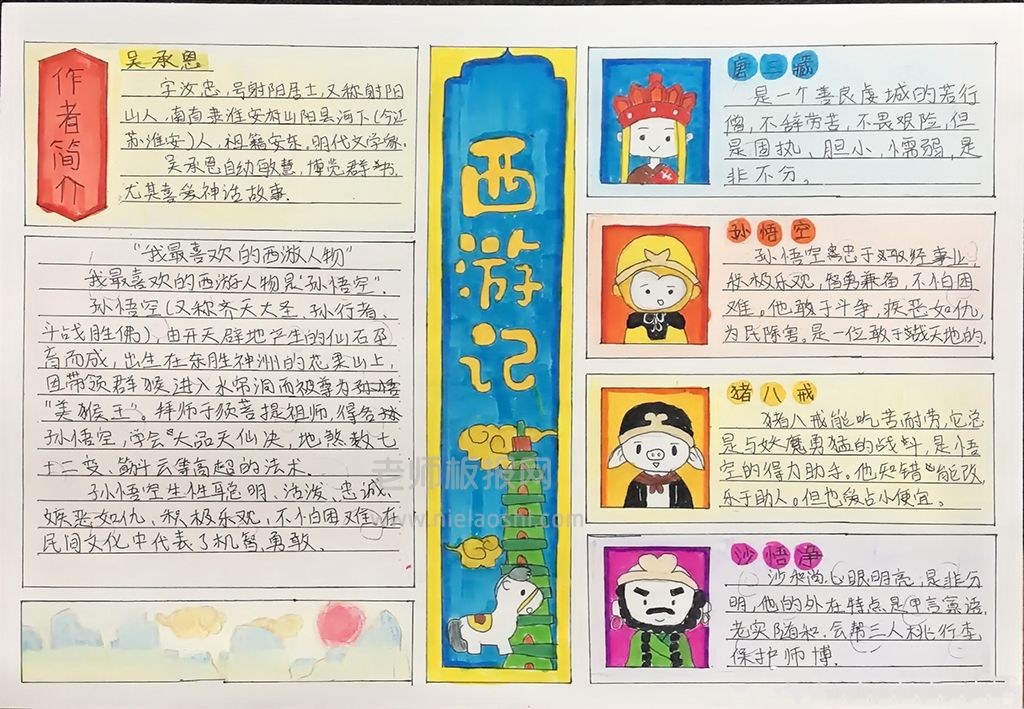 作者简介
吴承恩
字汝忠,号射阳居士,又称射阳
山人,
淮安府山阳县河下(今江
苏淮安)人,祖籍安东,明代文学家.
吴承恩自幼敏慧,博览群书.
尤其喜爱神话故事.
"我最喜欢的西游人物"
我最喜欢的西游人物是"孙悟空".
孙悟空(又称齐天大圣、孙行者、
斗战胜佛),由开天辟地产生的仙石孕
育而成,出生在东胜神洲的花果山上,
因带领群猴进入水帘洞而被尊为
"美猴王"。拜师于须菩提祖师,得名
孙悟空,学会大品天仙决,地煞数七
十二变、筋斗云等高超的法术.
孙悟空生性聪明、活泼、忠诚、
嫉恶如仇、积极乐观,不怕困难,在
民间文化中代表了机智、勇敢、
西游记
唐三藏
是一个善良虔城的苦行
僧,不辞劳苦,不畏艰险,但
是固执、胆小,懦弱,是
非不分。
孙悟空
孙悟空忠于取经事业,
积极乐观,智勇兼备,不怕困
难。他敢于斗争,嫉恶如仇,
为民除害。是一位敢于战天地的.
猪八戒
猪八戒能吃苦而耐劳,它总
是与妖魔勇猛的战斗,是悟
空的得力助手。他知错能改,
乐于助人。但也爱占小便宜。
沙悟净
沙和尚心眼明亮,是非分
明,他的外在特点是甲言寡语.
老实随和.会帮三人挑行李,
保护师博.
老师板报网
www.nielaoshi.com